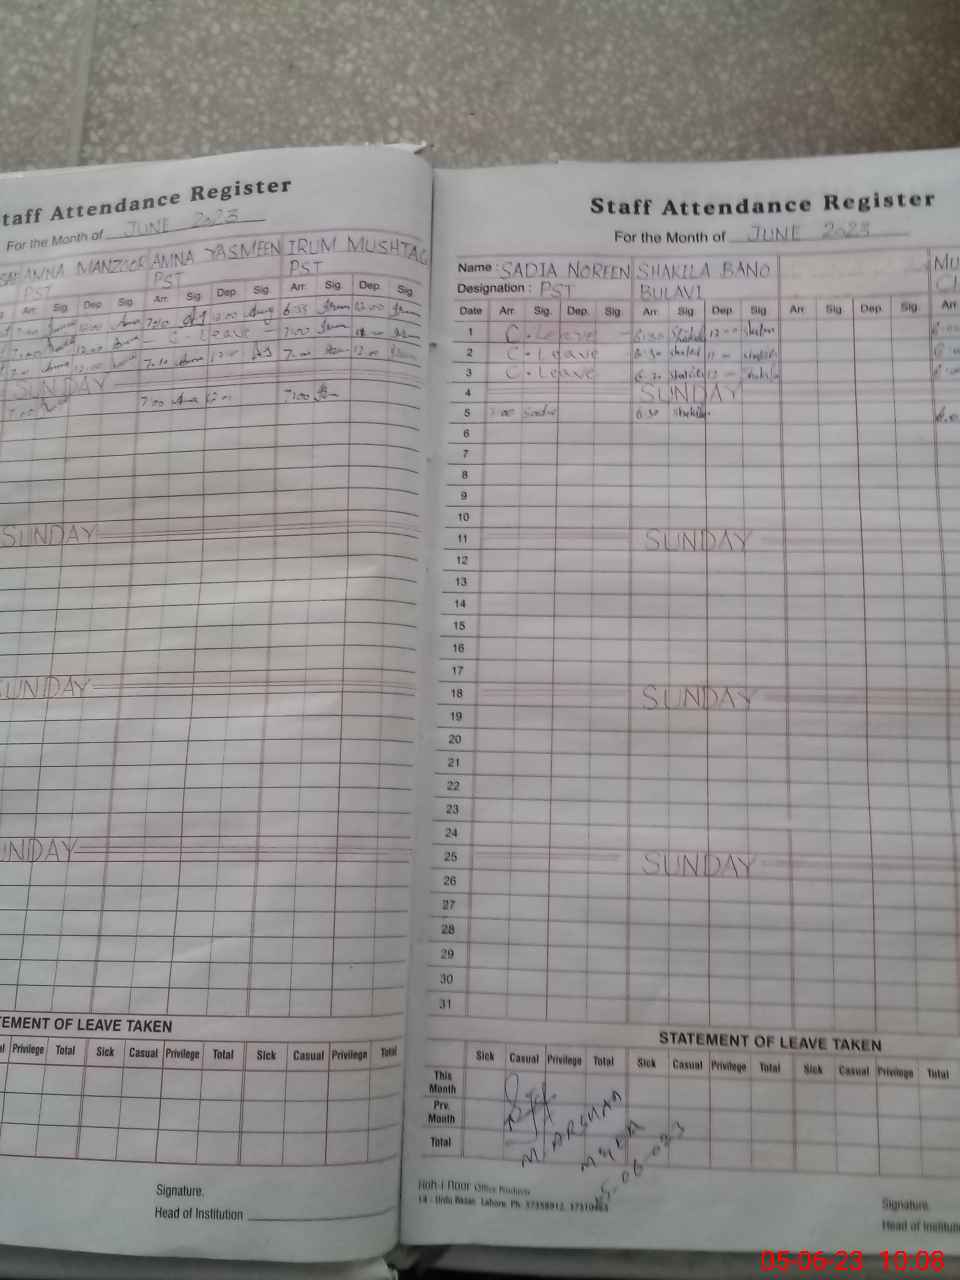 taff Attendance Register
For the Month of JUNE 2023
AMNA MANZOOR AMNA YASMEEN IRUM MUSHTAQ
PST PST PST
Arr. Sig. Dep. Sig. Arr. Sig. Dep. Sig. Arr. Sig. Dep. Sig.
7:00 12:00 7:00 12:00 6:55 12:00
7:00 12:00 - C. Leave - 7:00
7:00 12:00 7:10 12:00 7:00 12:00
SUNDAY
7:00 7:00 7:00
SUNDAY
SUNDAY
UNDAY
TEMENT OF LEAVE TAKEN
Privilege Total Sick Casual Privilege Total Sick Casual Privilege Total
Signature.
Head of Institution
Staff Attendance Register
For the Month of JUNE 2023
Name : SADIA NOREEN SHAKILA BANO MU
Designation : PST BULAVI
Date Arr. Sig. Dep. Sig. Arr. Sig. Dep. Sig. Arr. Sig. Dep. Sig. Arr
1 C. Leave - 6:30 Shakila 12:00
2 C. Leave 6:30 12
3 C. Leave 6:30 12
4 SUNDAY
5 7:00 Sadia 6:30
6
7
8
9
10
11 SUNDAY
12
13
14
15
16
17
18 SUNDAY
19
20
21
22
23
24
25 SUNDAY
26
27
28
29
30
31
STATEMENT OF LEAVE TAKEN
Sick Casual Privilege Total Sick Casual Privilege Total Sick Casual Privilege Total
This Month
Prv. Month
Total
M. ARSHAD
Office Products
14 - Urdu Bazar, Lahore. Ph:
Signature.
Head of Institutio
05-06-23 10:08